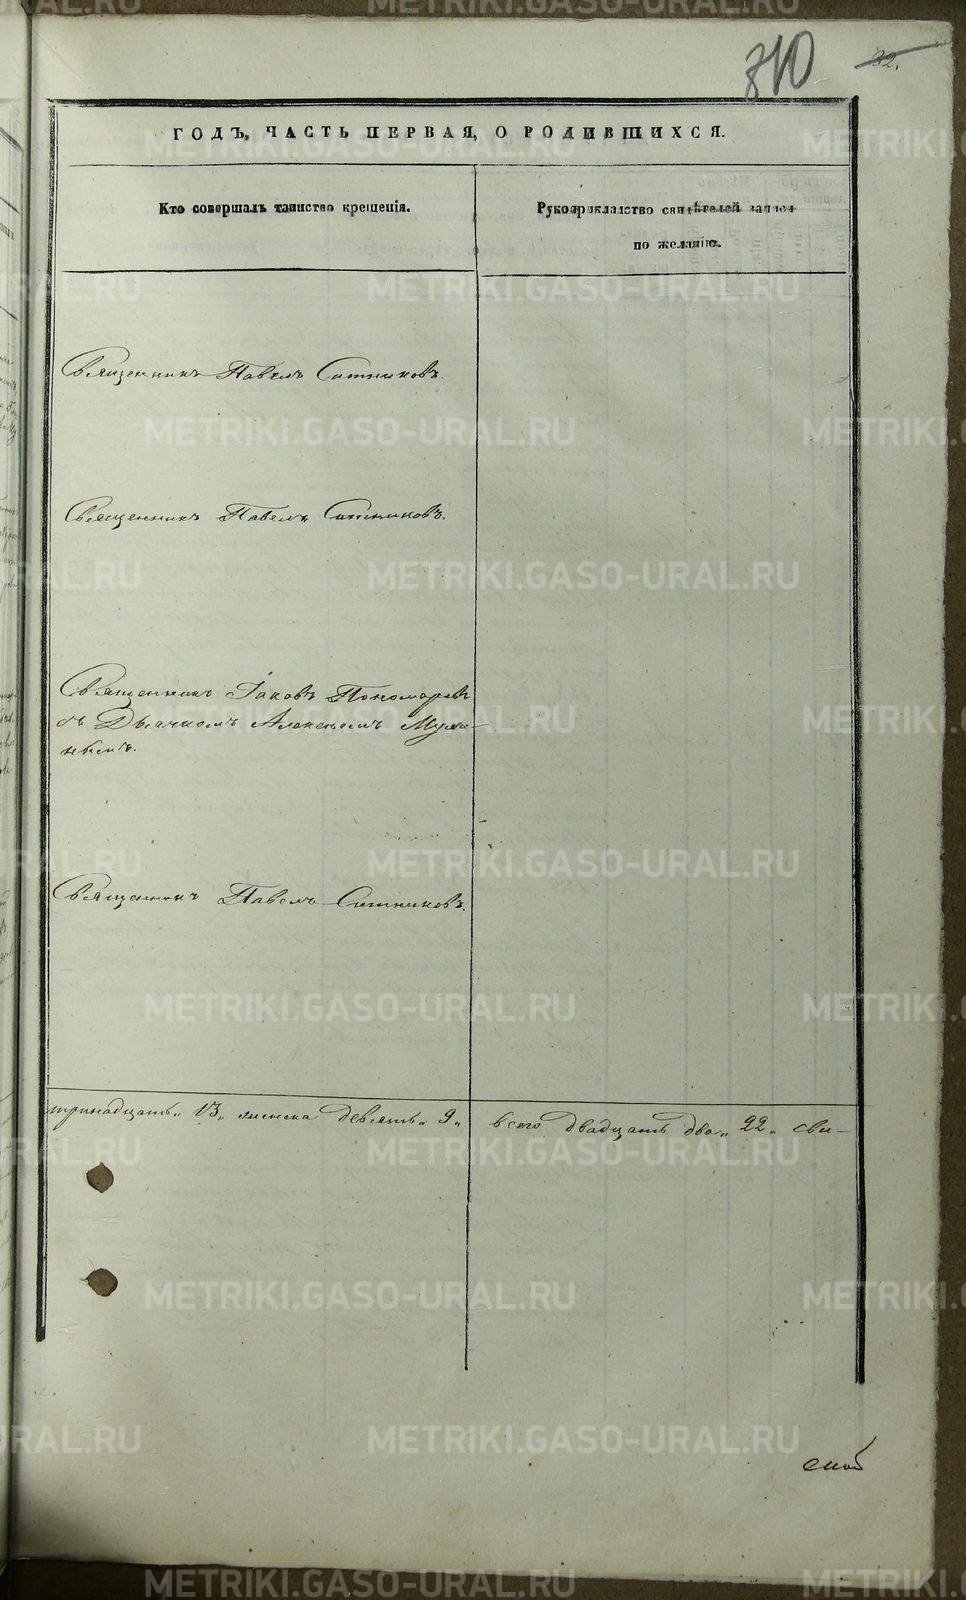 310
32.
ГОДЪ, ЧАСТЬ ПЕРВАЯ, О РОДИВШИХСЯ.
Кто совершалъ таинство крещенія.
Рукоприкладство свидѣтелей записи
по желанію.
Священникъ Павелъ Ситниковъ.
Священникъ Павелъ Ситниковъ.
Священникъ Іаковъ Пономаревъ
съ Дьячкомъ Алексѣемъ
Священникъ Павелъ Ситниковъ.
тринадцать „13„ женска девять „9„ всего двадцать два „22„ сви-
METRIKI.GASO-URAL.RU